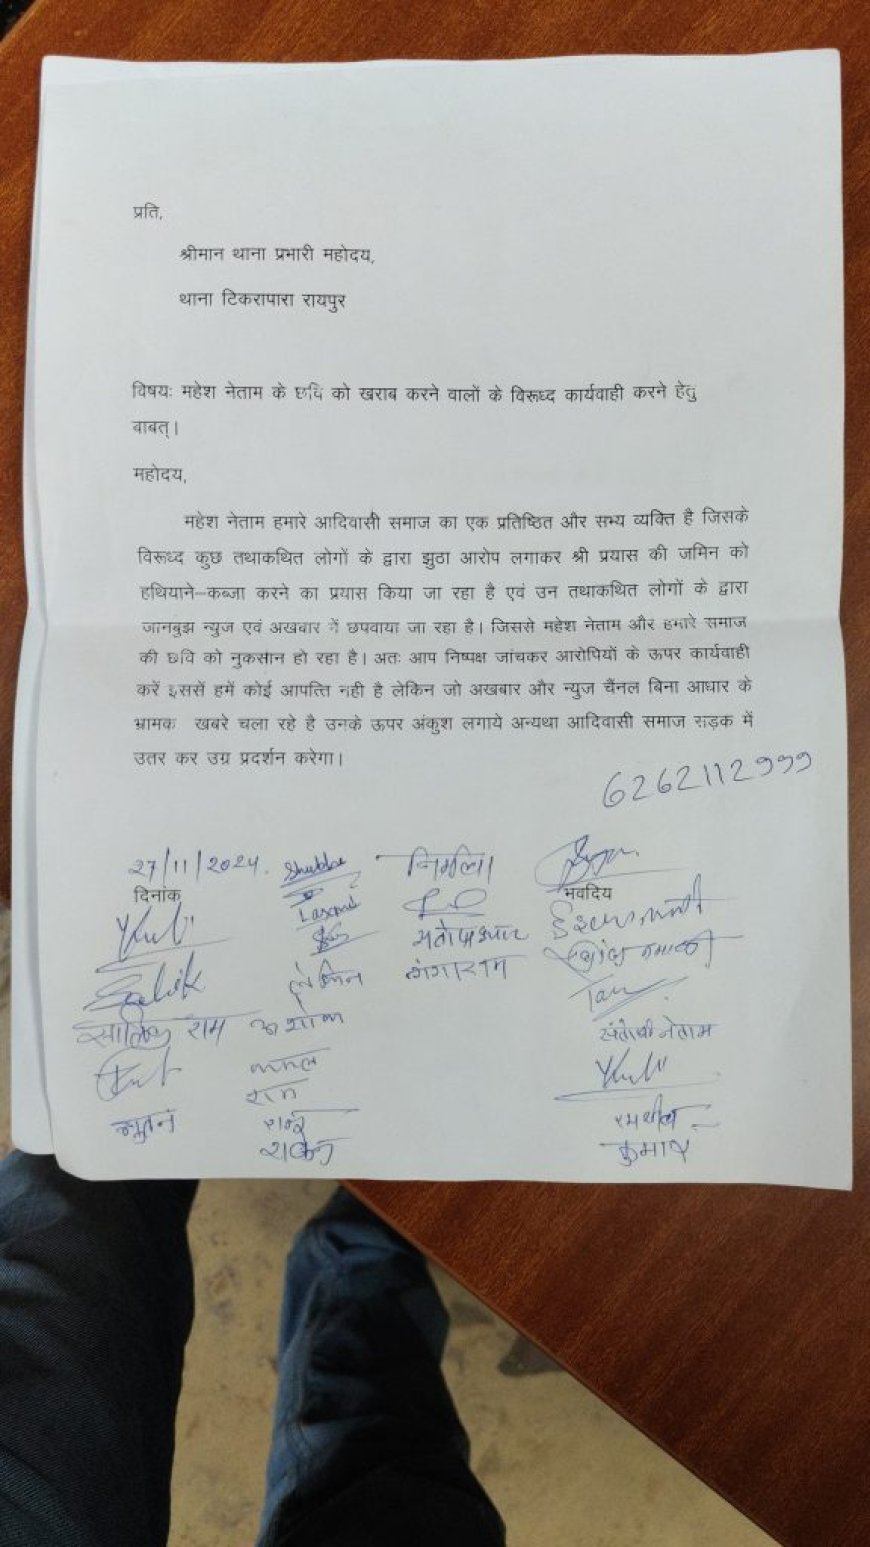 प्रति,
श्रीमान थाना प्रभारी महोदय,
थाना टिकरापारा रायपुर
विषयः महेश नेताम के छवि को खराब करने वालों के विरूध्द कार्यवाही करने हेतु
बाबत्।
महोदय,
महेश नेताम हमारे आदिवासी समाज का एक प्रतिष्ठित और सभ्य व्यक्ति है जिसके
विरूध्द कुछ तथाकथित लोगों के द्वारा झुठा आरोप लगाकर श्री प्रयास की जमिन को
हथियाने–कब्जा करने का प्रयास किया जा रहा है एवं उन तथाकथित लोगों के द्वारा
जानबुझ न्युज एवं अखबार में छपवाया जा रहा है। जिससे महेश नेताम और हमारे समाज
की छवि को नुकसान हो रहा है। अतः आप निष्पक्ष जांचकर आरोपियों के ऊपर कार्यवाही
करें इससें हमें कोई आपत्ति नही है लेकिन जो अखबार और न्युज चैंनल बिना आधार के
भ्रामक खबरे चला रहे है उनके ऊपर अंकुश लगाये अन्यथा आदिवासी समाज सड़क में
उतर कर उग्र प्रदर्शन करेगा।
6262112999
27/11/2024.
दिनांक
भवदिय
गंगाराम
राम
अशोक
संतोषी नेताम
कमल
राम
नूतन
कुमार